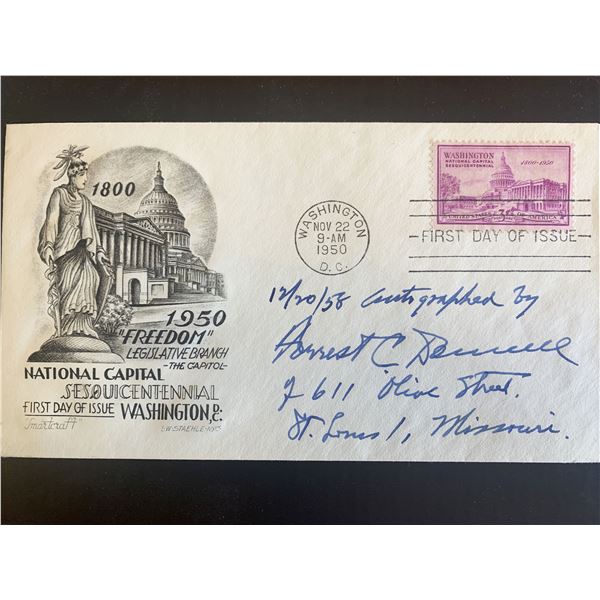 1800
1950
"FREEDOM"
LEGISLATIVE BRANCH
-THE CAPITOL-
NATIONAL CAPITAL
SESQUICENTENNIAL
FIRST DAY OF ISSUE WASHINGTON, D.C.
Smartcraft
L·W·STAEHLE·NYC
WASHINGTON
NOV 22
9-AM
1950
D. C.
WASHINGTON 1800-1950
NATIONAL CAPITAL
SESQUICENTENNIAL
UNITED STATES 3¢ OF AMERICA
FIRST DAY OF ISSUE
12/20/58 Autographed by
Forrest C Donnell
of 611 Olive Street.
St. Louis 1, Missouri.